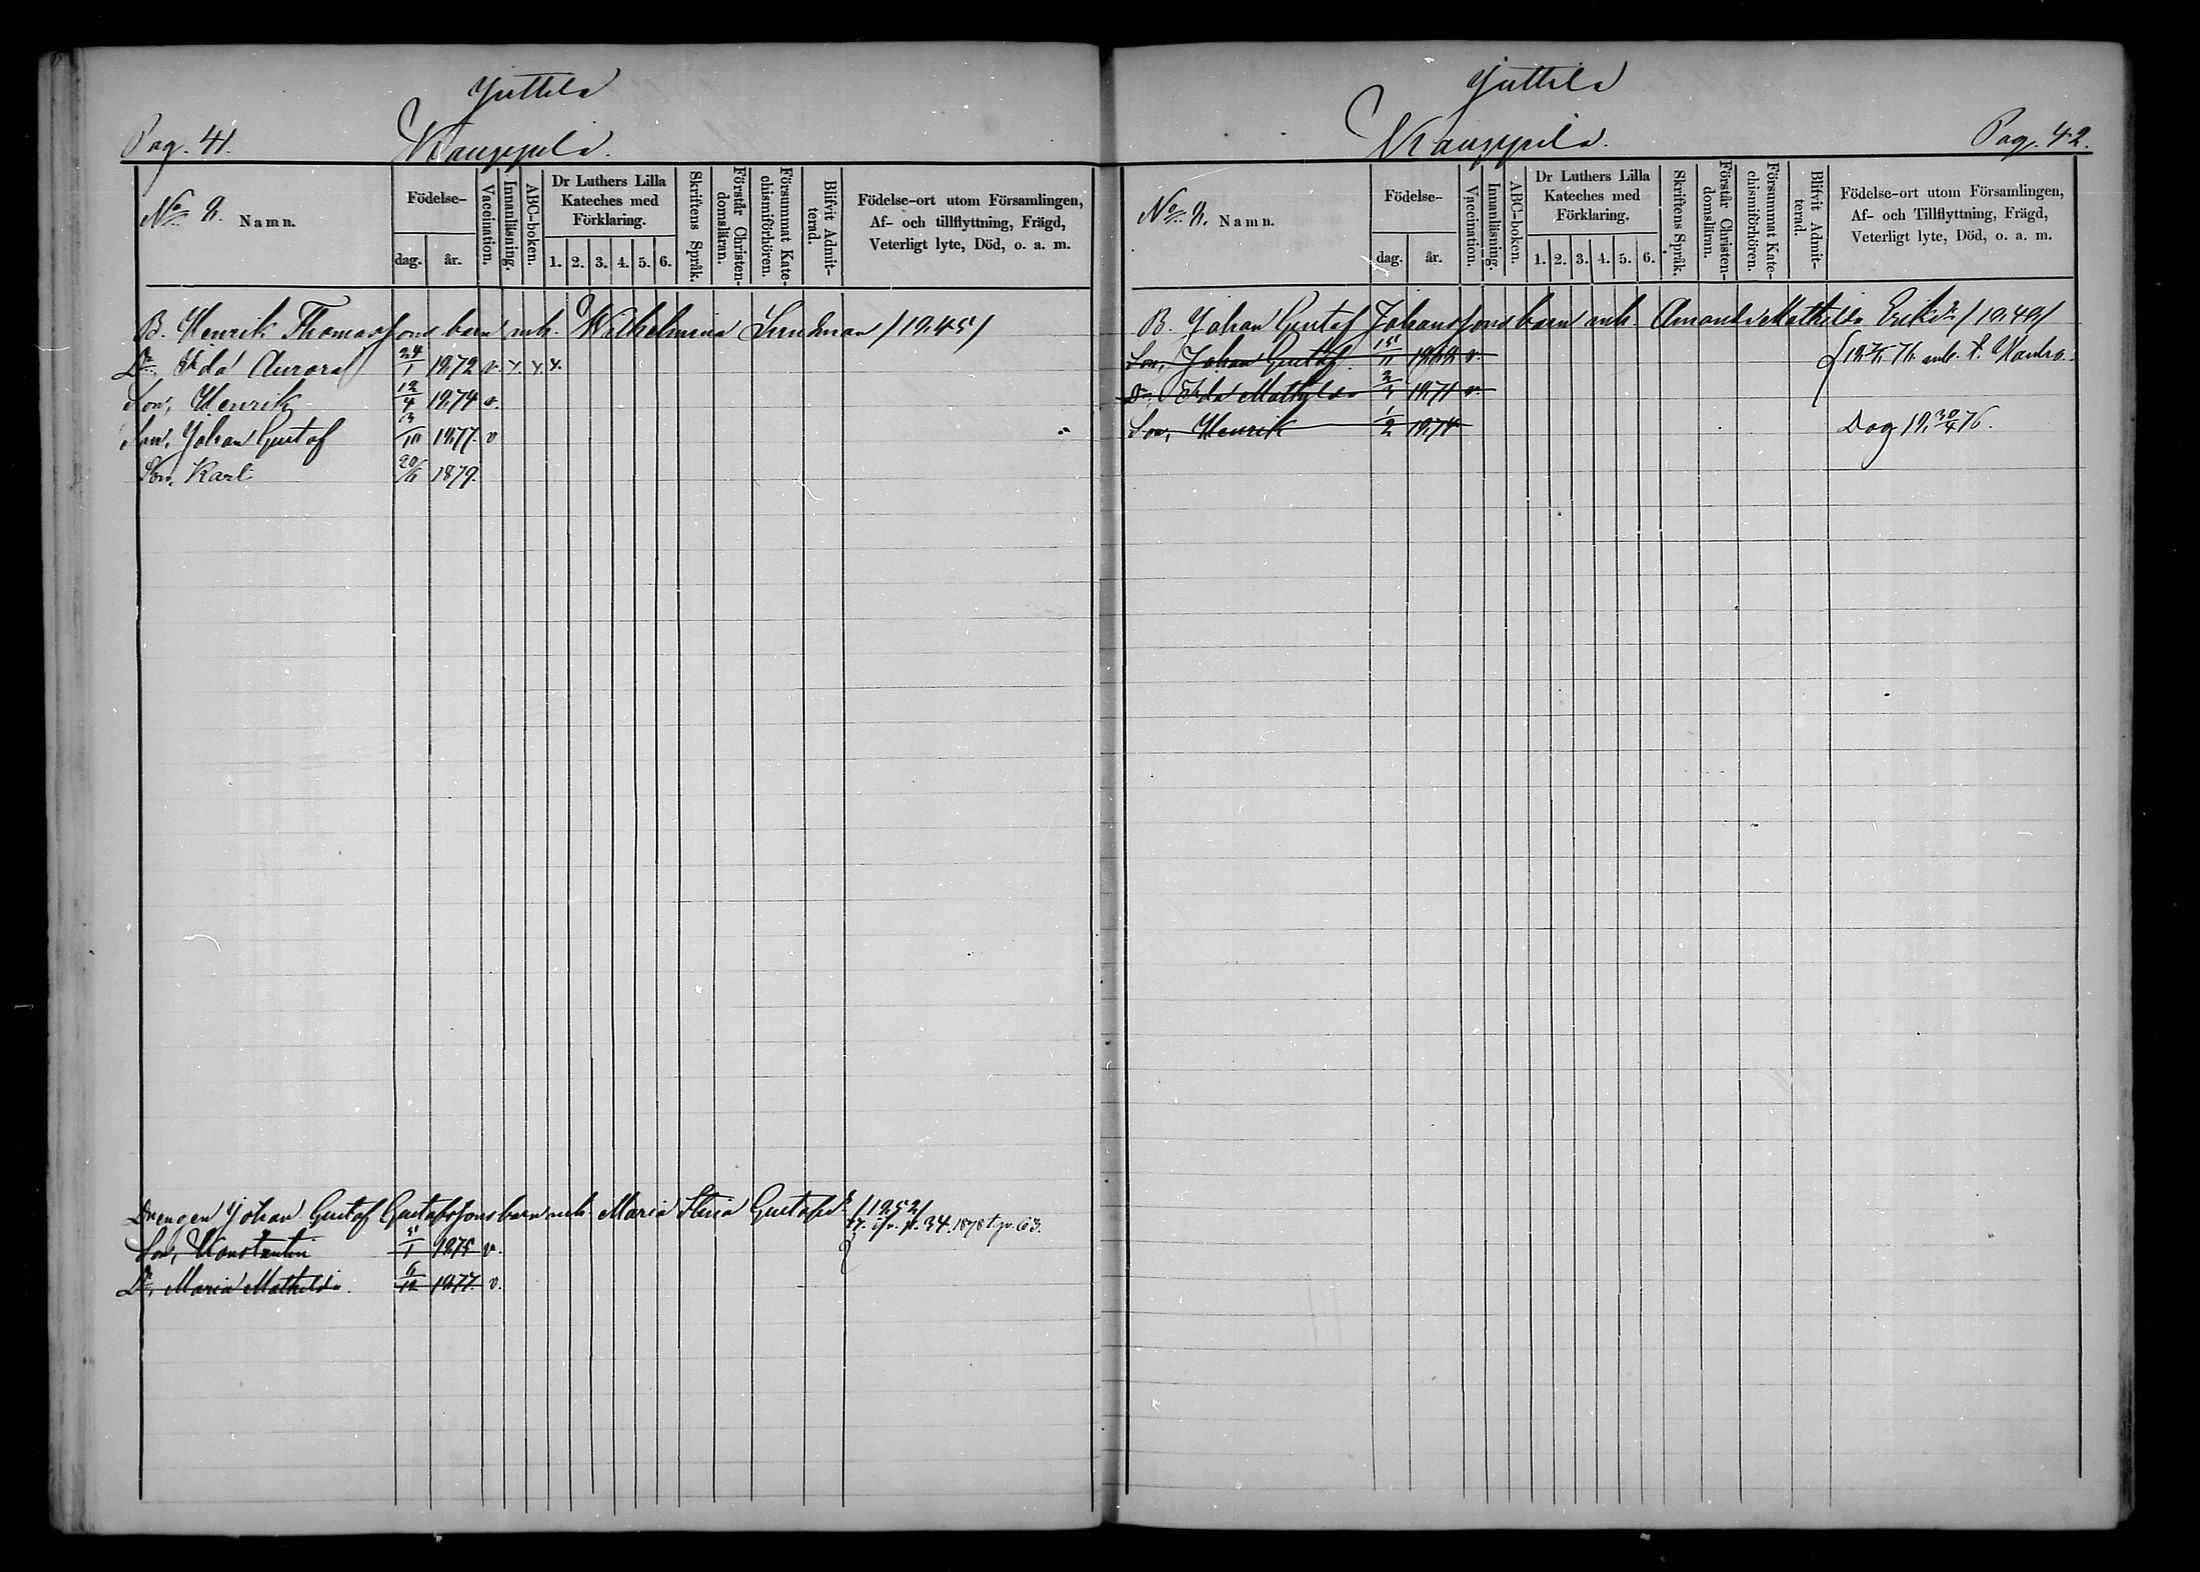 Juttila
Pag. 41. Kauppila.
No 8. Namn.
Födelse-
dag. år.
Vaccination.
Innanläsning.
ABC-boken.
Dr Luthers Lilla
Kateches med
Förklaring.
1. 2. 3. 4. 5. 6.
Skriftens Språk.
Förstår Christen-
domsläran.
Försummat Kate-
chismiförhören.
Blifvit Admit-
terad.
Födelse-ort utom Församlingen,
Af- och tillflyttning, Frägd,
Veterligt lyte, Död, o. a. m.
B. Henrik Thomassons barn mh. Wilhelmina Sundman /1845/
Dr, Ida Aurora 24/1 1872 v. x x x.
Son, Henrik 12/4 1874 v.
Son, Johan Gustaf 3/10 1877. v
Son, Karl 20/11 1879.
Drengen Johan Gustaf Gustafssons barn mh. Maria Stina Gustafsdr /1852/
p. 34. 1878 t. p. 63.
Son, Konstantin 5/1 1875 v.
Dr, Maria Mathilda. 6/12 1877. v.
Juttila
Kauppila. Pag. 42.
No 8. Namn.
Födelse-
dag. år.
Vaccination.
Innanläsning.
ABC-boken.
Dr Luthers Lilla
Kateches med
Förklaring.
1. 2. 3. 4. 5. 6.
Skriftens Språk.
Förstår Christen-
domsläran.
Försummat Kate-
chismiförhören.
Blifvit Admit-
terad.
Födelse-ort utom Församlingen,
Af- och Tillflyttning, Frägd,
Veterligt lyte, Död, o. a. m.
B. Johan Gustaf Johanssons barn mh. Amanda Mathilda Eriksdr /1849/
Son, Johan Gustaf. 15/11 1868 v. 76
Dr, Ida Mathilda 1871 v.
Son, Henrik 1/2 1874 Dog 18 30/4 76.